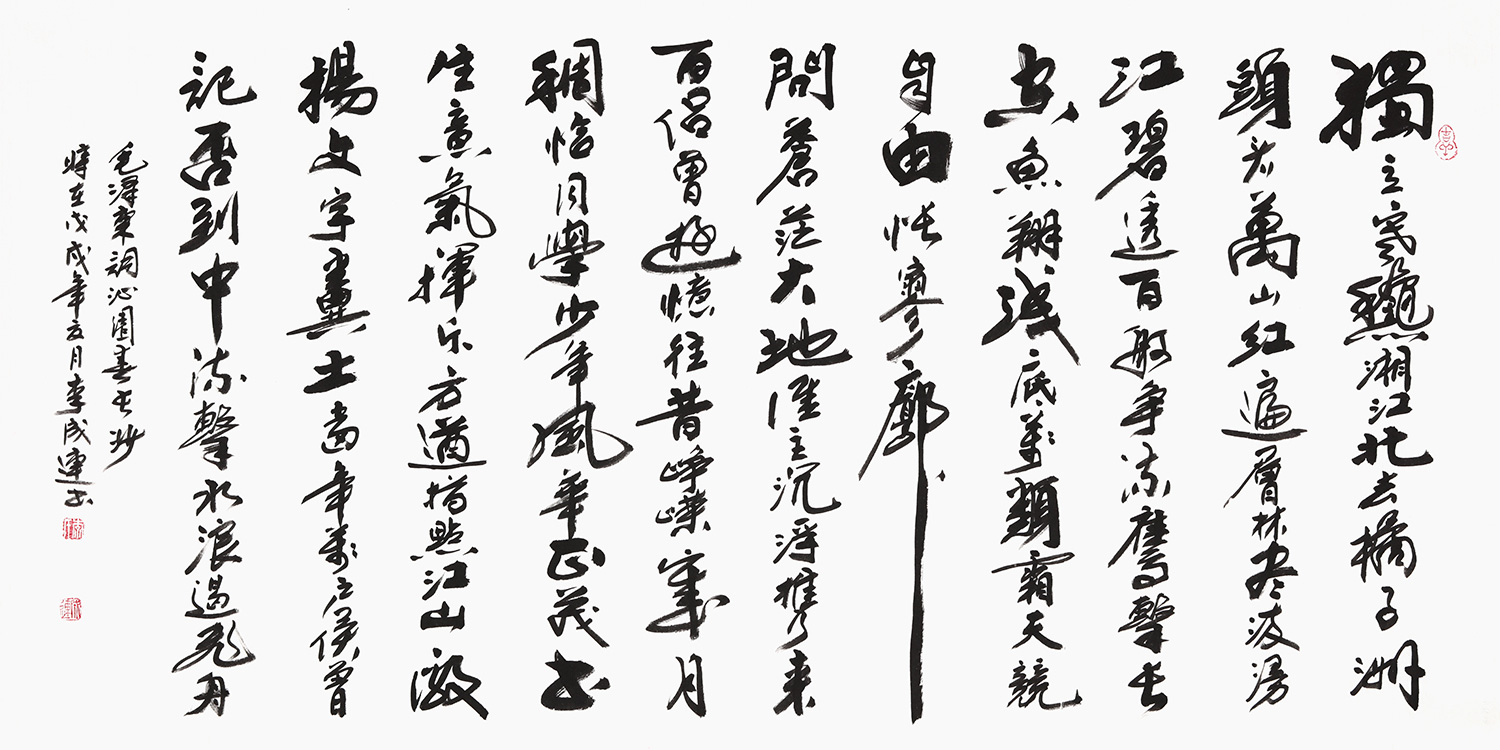 獨立寒穐湘江北去橘子洲
頭看萬山紅遍層林尽染漫
江碧透百舸争流鷹擊長
空魚翔浅底萬類霜天競
自由悵寥廓
問蒼茫大地誰主沉浮攜来
百侣曾遊憶往昔崢嶸歲月
稠恰同學少年風華正茂書
生意氣揮斥方遒指點江山激
揚文字糞土當年萬户侯曾
記否到中流擊水浪遏飛舟
毛澤東詞沁園春長沙
時在戊戌年夏月李成連書